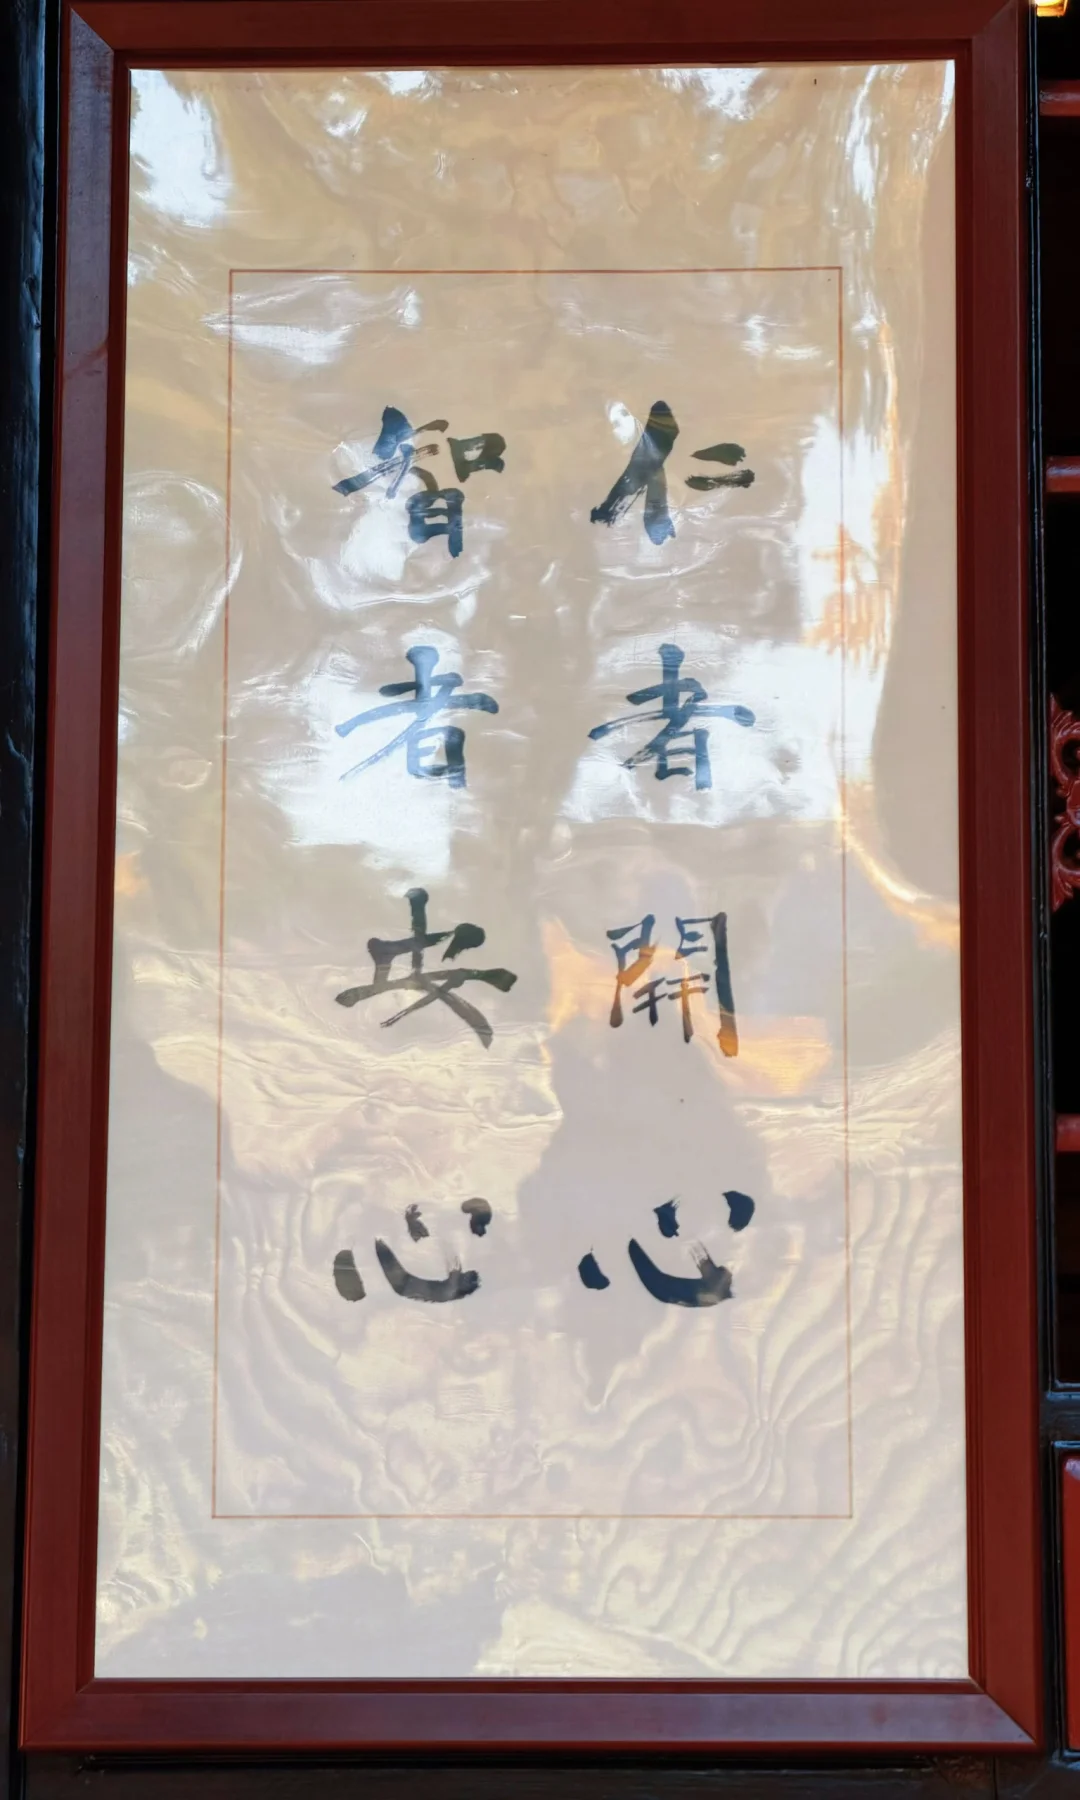 仁者開心
智者安心